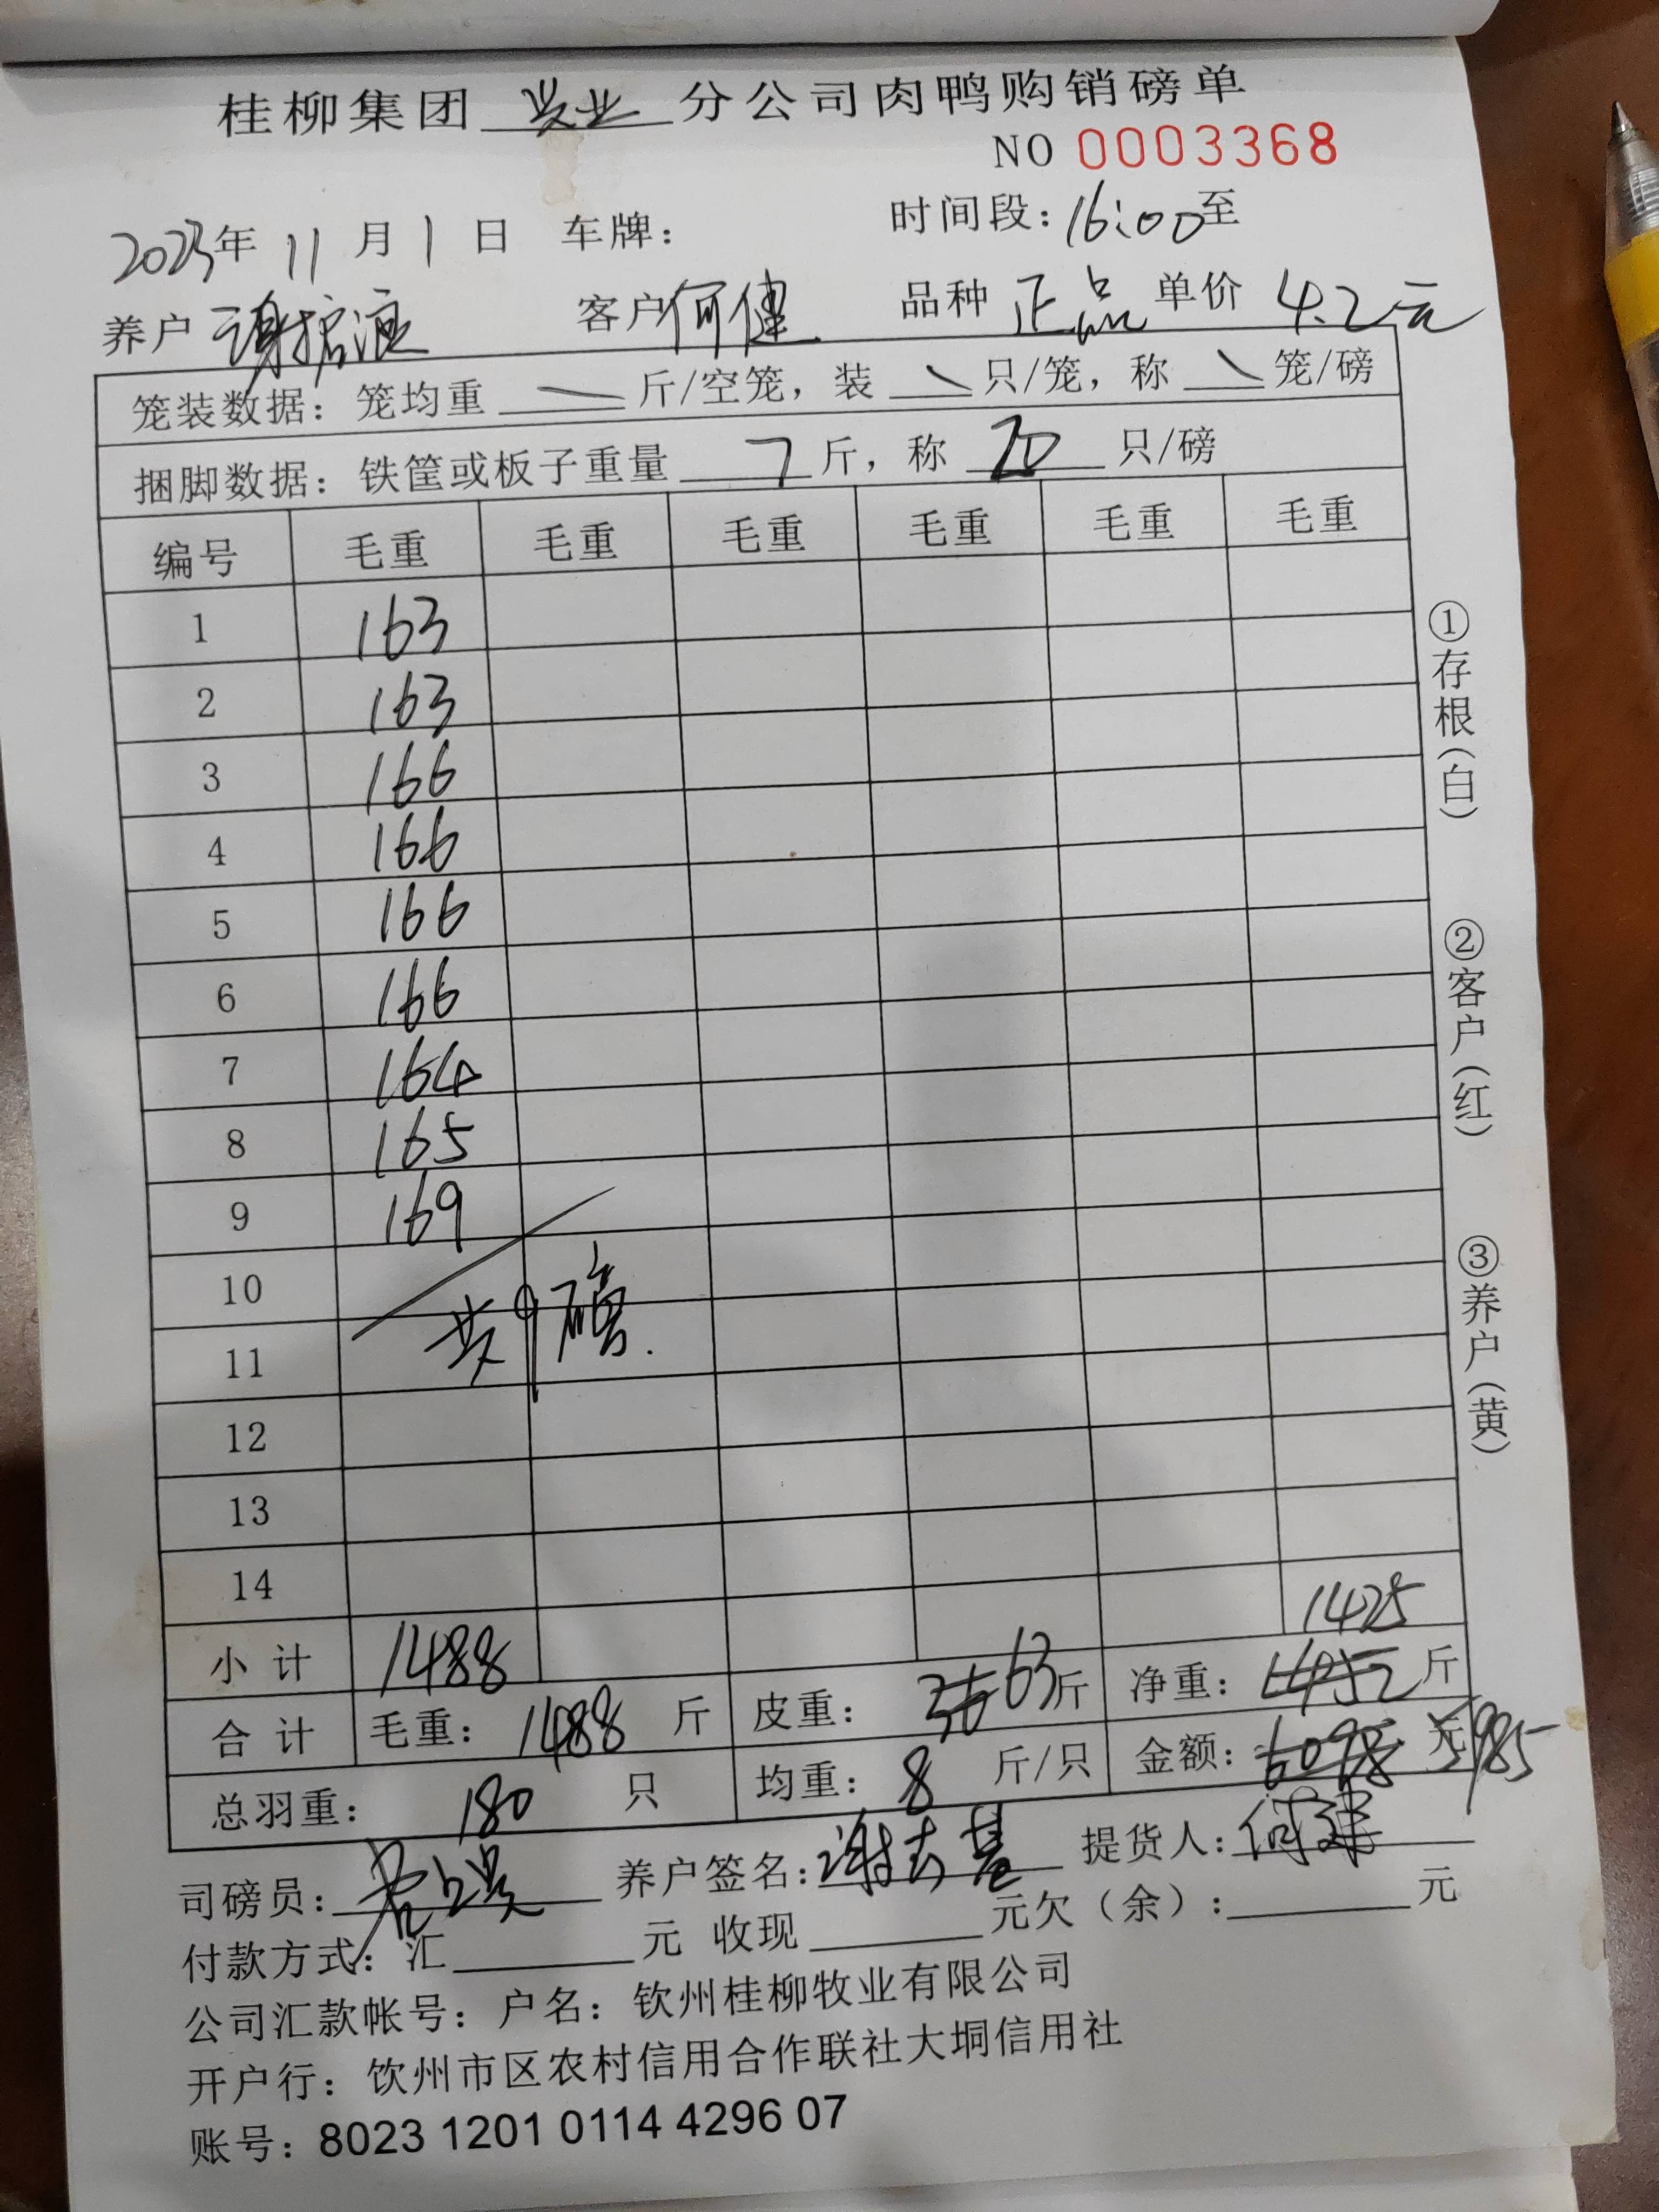 桂柳集团 牧业 分公司肉鸭购销磅单
NO 0003368
2023年 11 月 1 日 车牌： 时间段：16:00至
养户 客户 何健 品种 正品 单价 4.2元
笼装数据：笼均重 斤/空笼，装 只/笼，称 笼/磅
捆脚数据：铁筐或板子重量 7 斤，称 20 只/磅
编号 毛重 毛重 毛重 毛重 毛重 毛重
1 163
2 163
3 166
4 166
5 166
6 166
7 164
8 165
9 169
10
11 共9磅.
12
13
14
1425
小计 1488
合计 毛重：1488 斤 皮重：63斤 净重： 斤
总羽重：180 只 均重：8 斤/只 金额：6098 元 5985
司磅员： 养户签名： 提货人：何健
付款方式：汇 元 收现 元欠（余）： 元
公司汇款帐号：户名：钦州桂柳牧业有限公司
开户行：饮州市区农村信用合作联社大垌信用社
账号：8023 1201 0114 4296 07
①存根(白) ②客户(红) ③养户(黄)